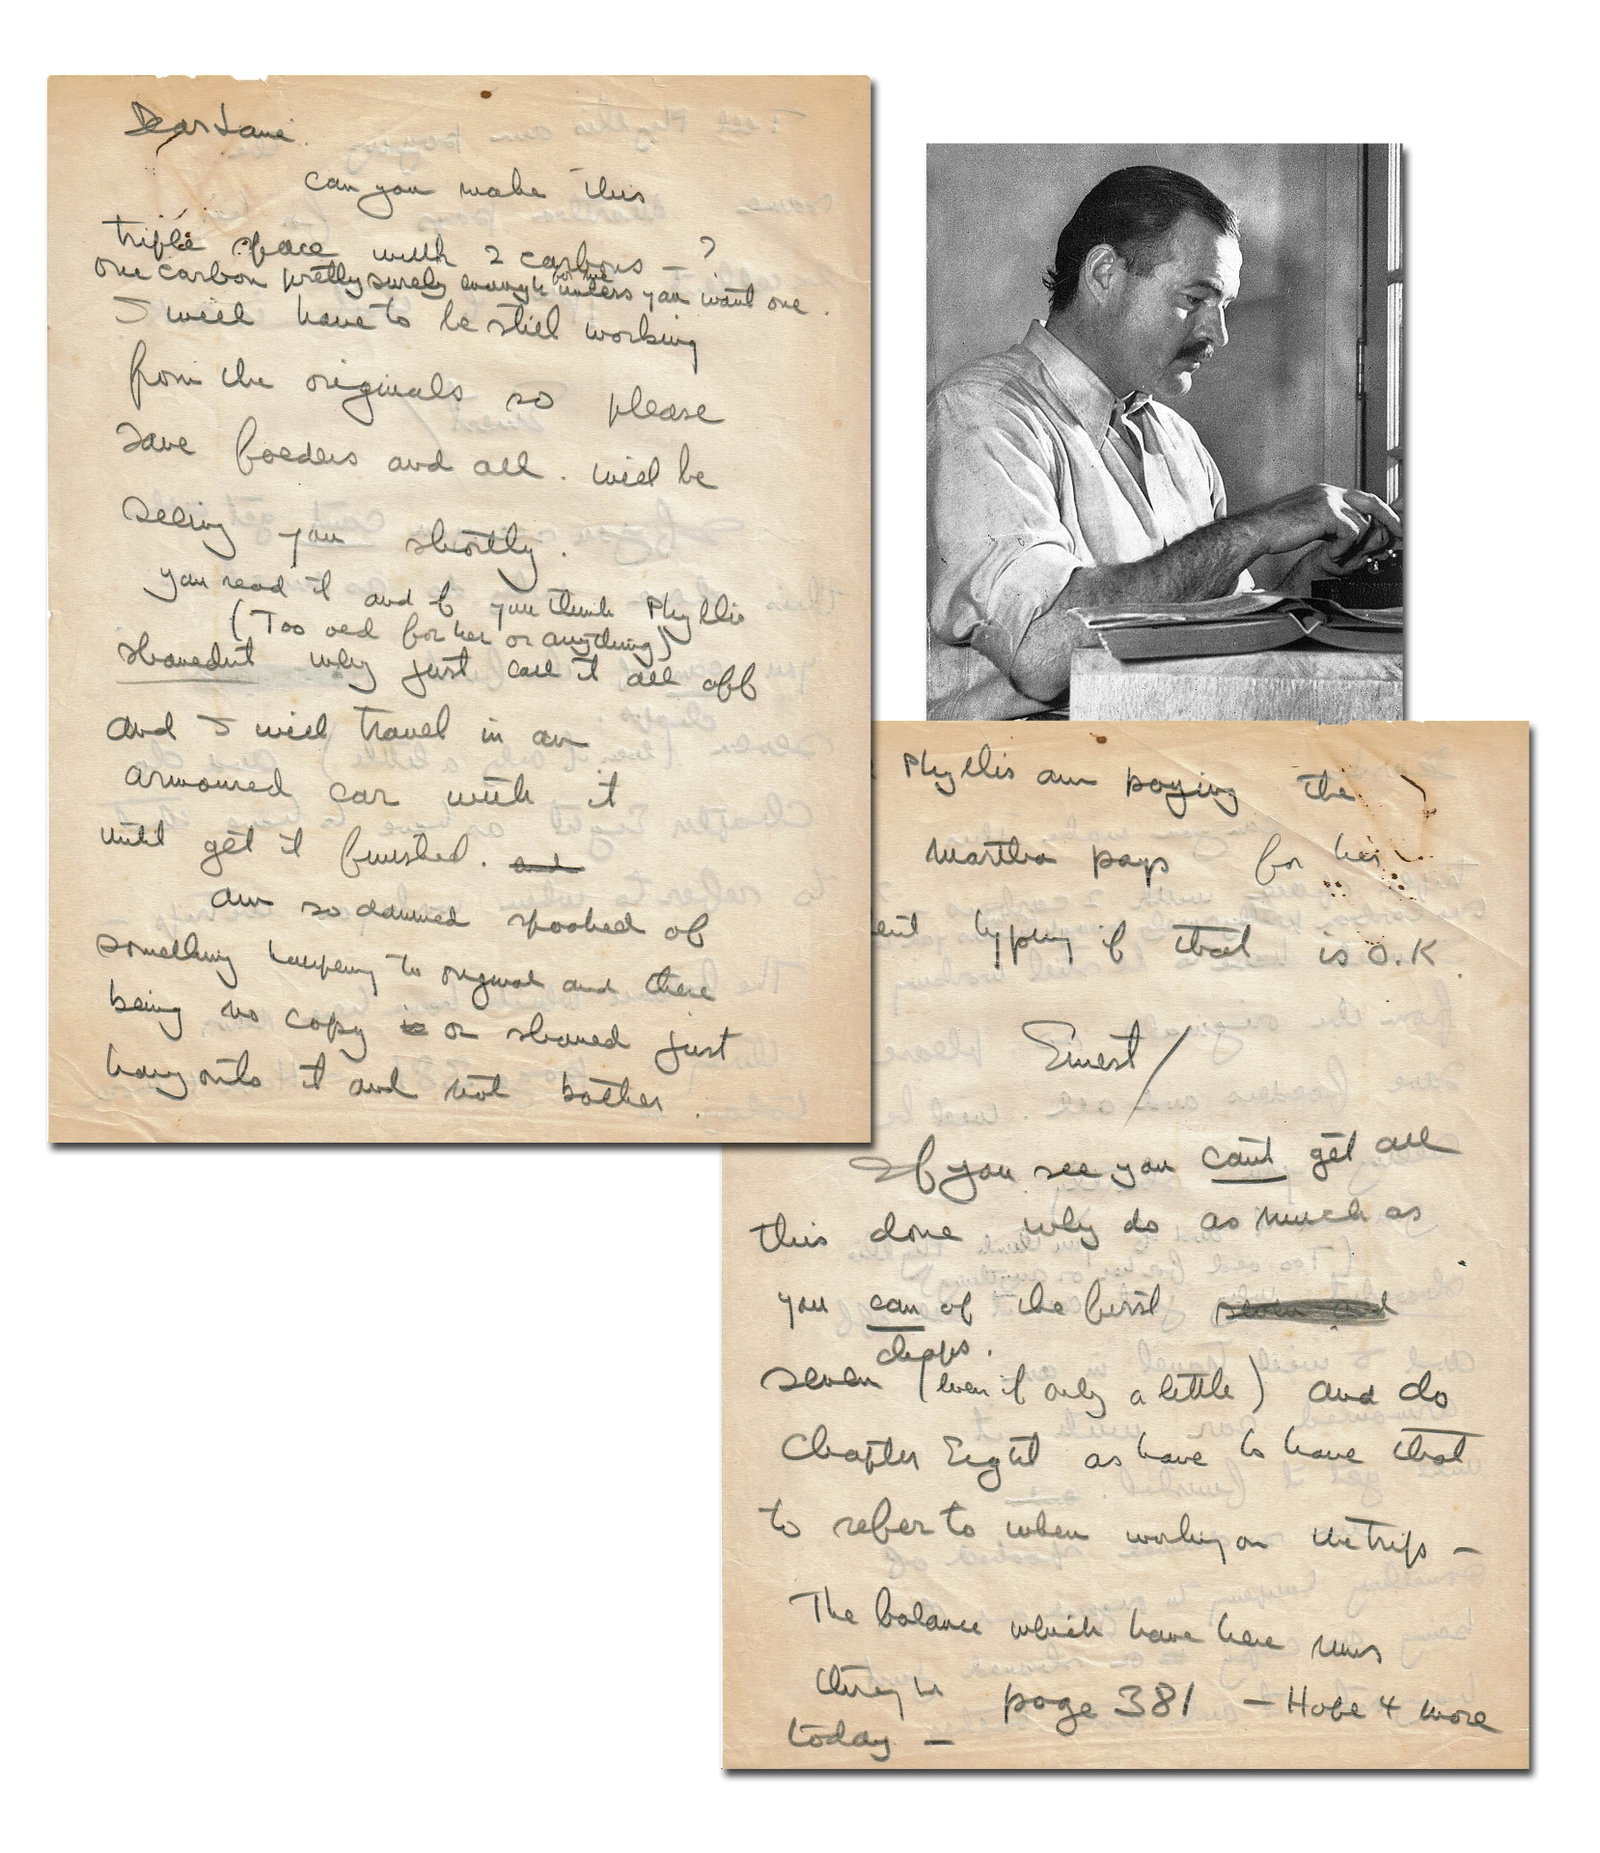 Dear Jane
can you make this
triple space with 2 carbons - ?
one carbon pretty surely enough for me unless you want one.
I will have to be still working
from the originals so please
save folders and all. Will be
seeing you shortly.
you read it and if you think Phyllis
(Too old for her or anything)
shouldnt why just call it all off
and I will travel in an
armoured car with it
until get it finished. and
am so damned spooked of
something happening to original and there
being no copy is or should just
hang onto it and not bother.
Phyllis am paying the
Martha pays for her
ent typing if that is O.K.
Ernest
If you see you cant get all
this done why do as much as
you can of the first seven and
chaps.
seven (even if only a little) and do
Chapter Eight as have to have that
to refer to when working on the trip -
The balance which have here runs
through page 381 - Hope 4 more
today -